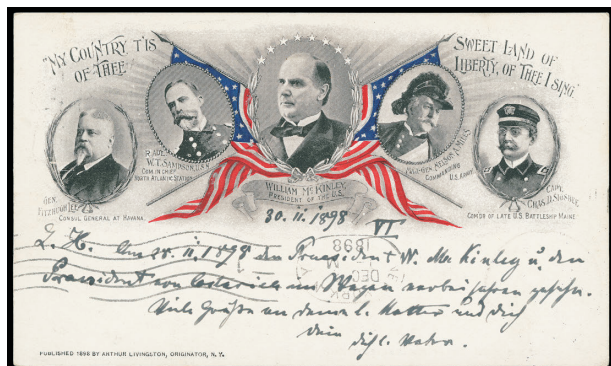 "MY COUNTRY 'TIS
OF THEE"
SWEET LAND OF
LIBERTY, OF THEE I SING."
GEN.
FITZHUGH LEE
CONSUL GENERAL AT HAVANA.
W.T. SAMPSON, U.S.N.
COM. IN CHIEF
NORTH ATLANTIC STATION
WILLIAM McKINLEY,
PRESIDENT OF THE U.S.
MAJ.-GEN. NELSON A. MILES
COMMANDING
U.S. ARMY
CAPT.
CHAS. D. SIGSBEE
COM'DR OF LATE U.S. BATTLESHIP MAINE
30. 11. 1898
VI
1898
DEC
L. H. Am 28. 11. 1898 den Praesident W. Mc Kinley u. den
Praesident von Costarica im Wagen vorbei fahren gesehen.
Viele Grüße an deine l. Mutter und dich
dein dich l. Vater.
PUBLISHED 1898 BY ARTHUR LIVINGSTON, ORIGINATOR, N. Y.